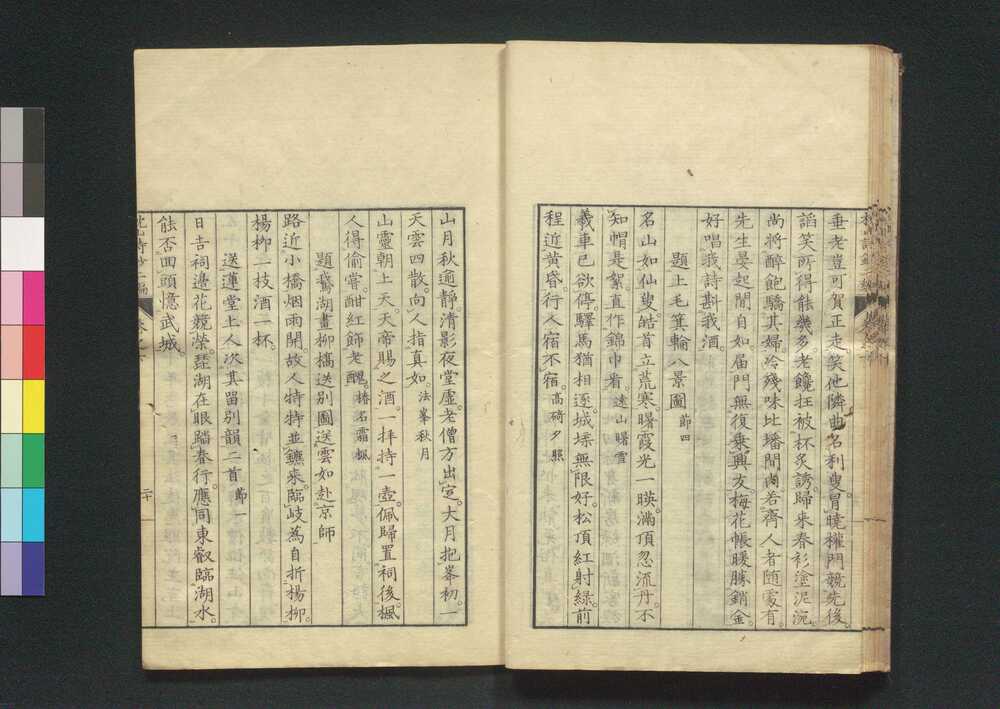 垂老豈可賀正走笑他隣曲名利叟冒曉權門競先後
謟笑所得能幾多老饞狂被杯炙誘歸来春衫塗泥涴
尚將醉飽驕其婦冷殘味比墦間肉若齊人者随處有
先生晏起閒自如届門無復乗興友梅花帳暖勝銷金
好唱我詩斟我酒。
題上毛箕輪八景圖 節四
名山如仙叟。皓首立荒寒曙霞光一暎。滿頂忍流丹。不
知帽是絮直作錦巾看。遠山曙雪
羲車已欲停。驛馬猶相逐。城堞無限好。松頂紅射綠。前
程近黄昏行人宿不宿。高碕夕照
山月秋逾静。清影夜堂虚。老僧方出定。大月抱峯初。一
天雲四散。向人指真如。法峯秋月
山靈朝上天。天帝賜之酒。一拝持一壺。佩歸置祠後。楓
人得偷嘗。酣紅飾老醜。榛名霜楓
題鵞湖畫柳橋送別圖送雲如赴京師
路近小橋烟雨開故人特特並鑣来。臨岐為自折楊柳。
楊柳一枝酒一杯。
送蓮堂上人次其留別韻二首 節一
日吉祠邉花競榮。琵湖在眼踏春行。應同東叡臨湖水。
能否回頭憶武城